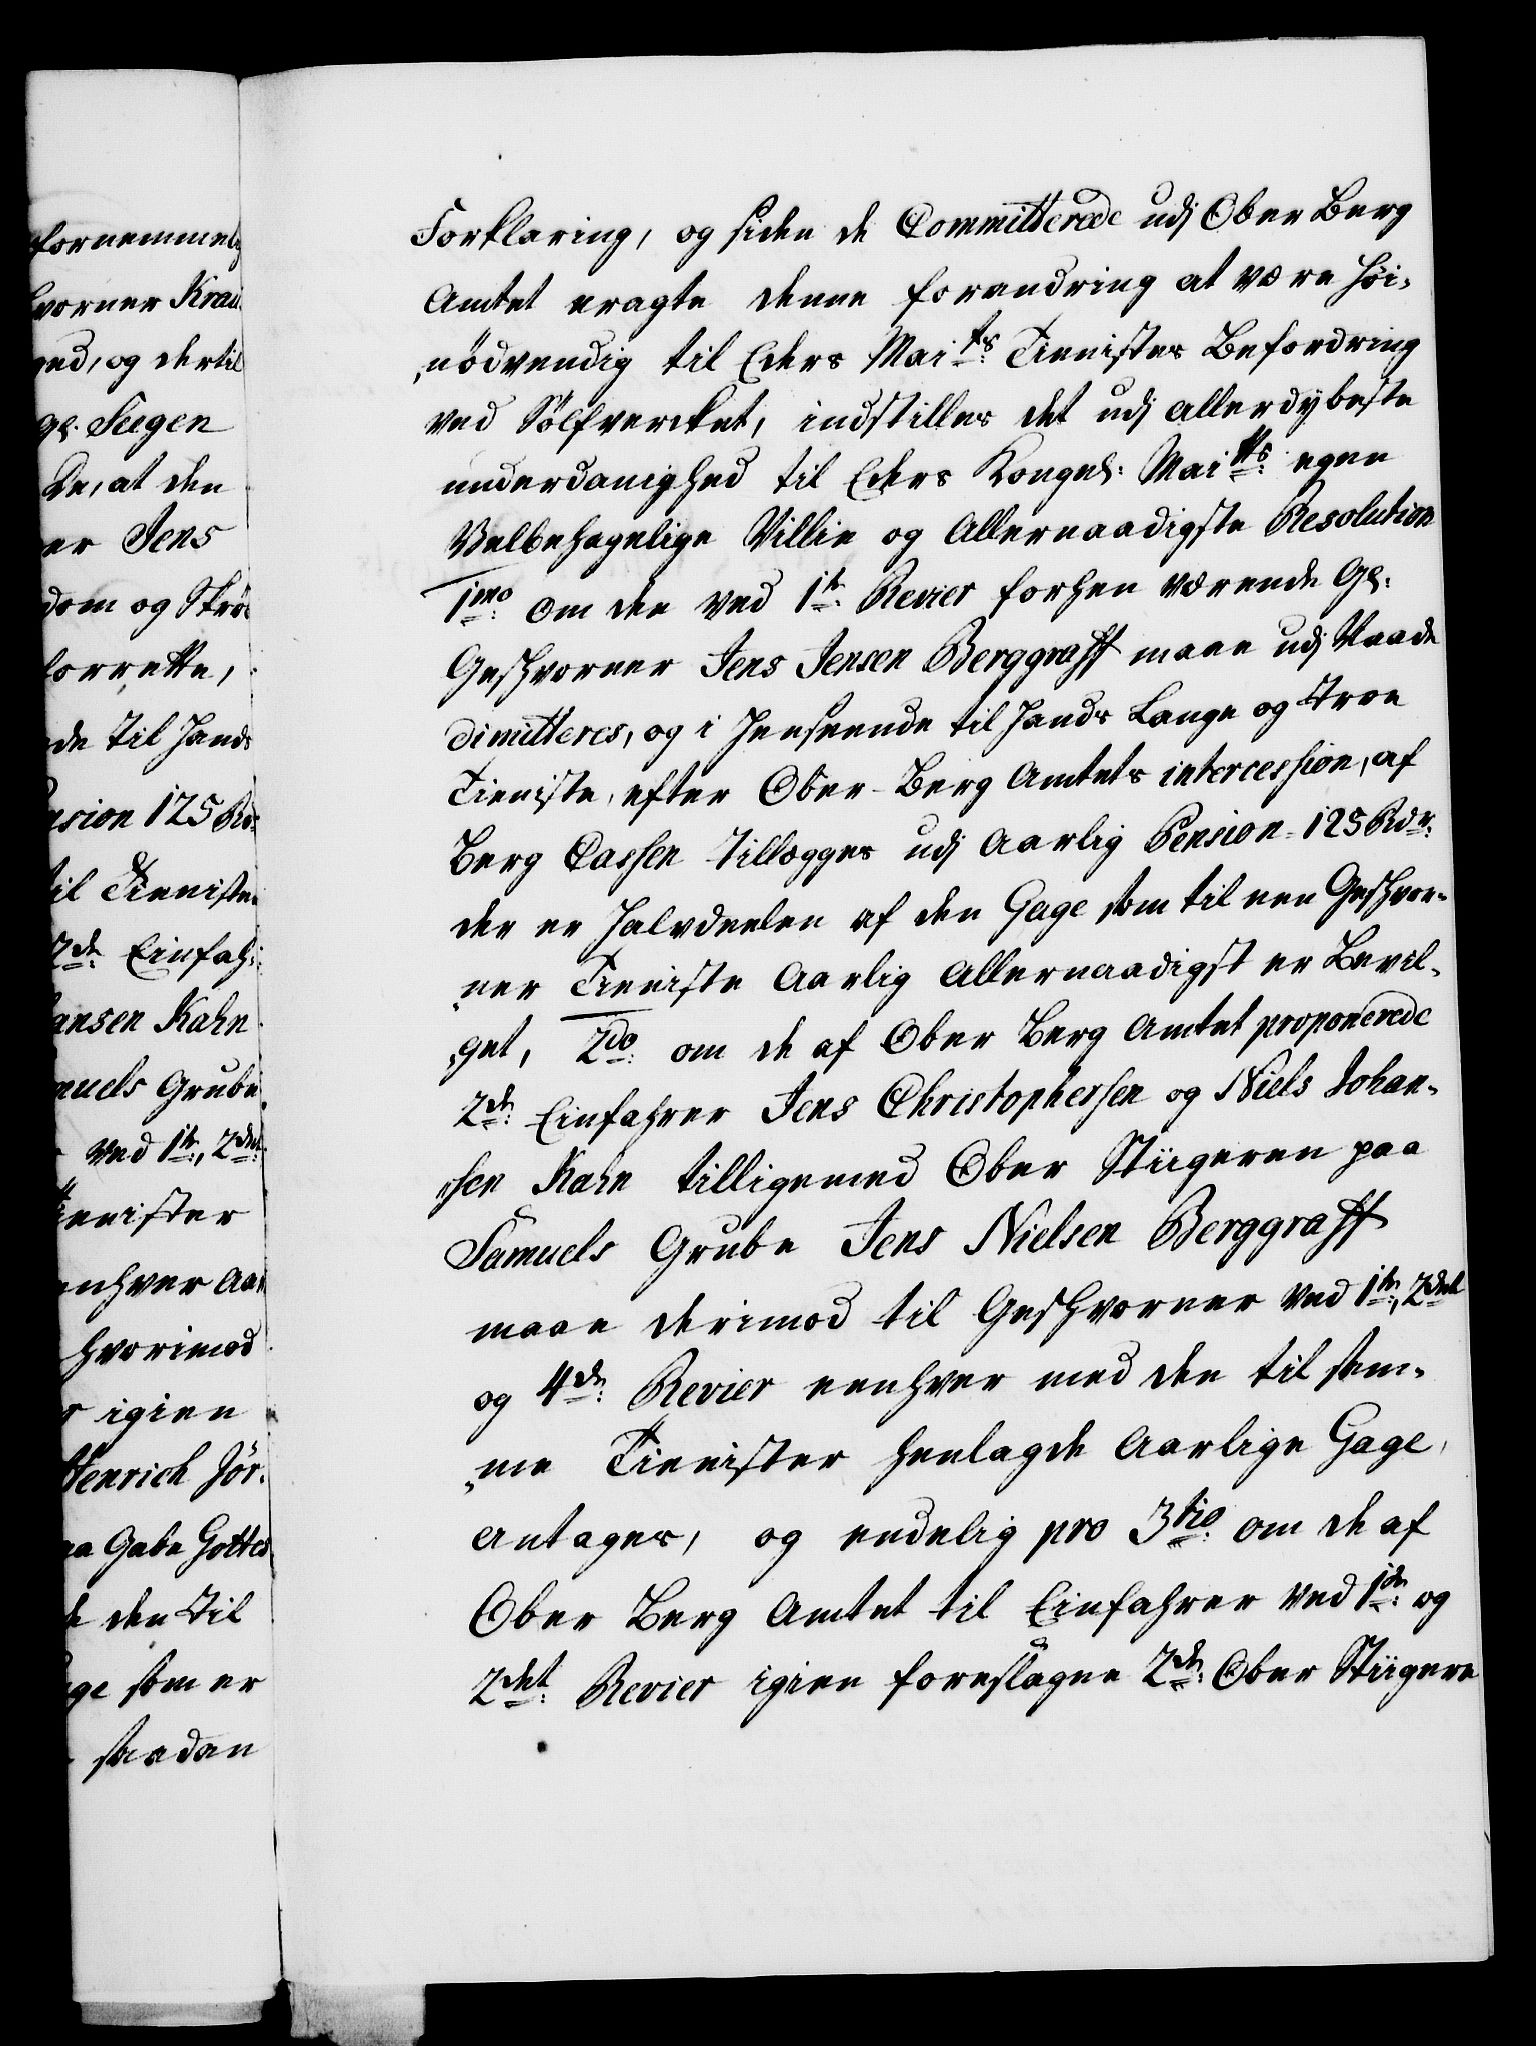 fornemmelig
hvorner Krau
ged, og dertil
ge. Seegen
de, at den
er Jens
dom og Skrö
forrette,
de til hands
nsion 125 Rdr
til Tieniste
2de Einfah¬
ansen Kahn
muels Grube
ved 1te, 2det
Tienister
enhver Aar
hvorimod
r igien
Henrich Jör¬
aa Gabe Gottes
de den til
ge som er
saadan
Forklaring, og siden de Committerede udj Ober Berg
Amtet eragte denne forandring at være høi¬
nödvendig til Eders Maits Tienistes Befordring
ved Sölfvercket, indstilles det udj allerdybeste
underdanighed til Eders Kongel: Maitts egen
Velbehagelige Villie og Allernaadigste Resolution
1mo om den ved 1te Revier forhen værende Gl.
Geschvorner Jens Jensen Berggraff maae udj Naade
dimitteres, og i henseende til hands Lange og troe
Tieniste, efter Ober-Berg Amtets intercession, af
Berg Cassen tillegges udj Aarlig Pension 125 Rdr.
der er halvdeelen af den Gage som til een Geschvor¬
ner Tieniste Aarlig Allernaadigst er Bevil¬
get, 2do om de af Ober Berg Amtet proponerede
2de Einfahrer Jens Christophersen og Niels Johan¬
sen Kahn tilligemed Ober Stiigeren paa
Samuels Grube Jens Nielsen Berggraff
maae derimod til Geschvorner ved 1te, 2det
og 4de Revier eenhver med den til sam¬
me Tienister henlagde Aarlige Gage,
antages, og endelig pro 3tio om de af
Ober Berg Amtet til Einfahrer ved 1de og
2det Revier igien foreslagne 2de Ober Stiigere